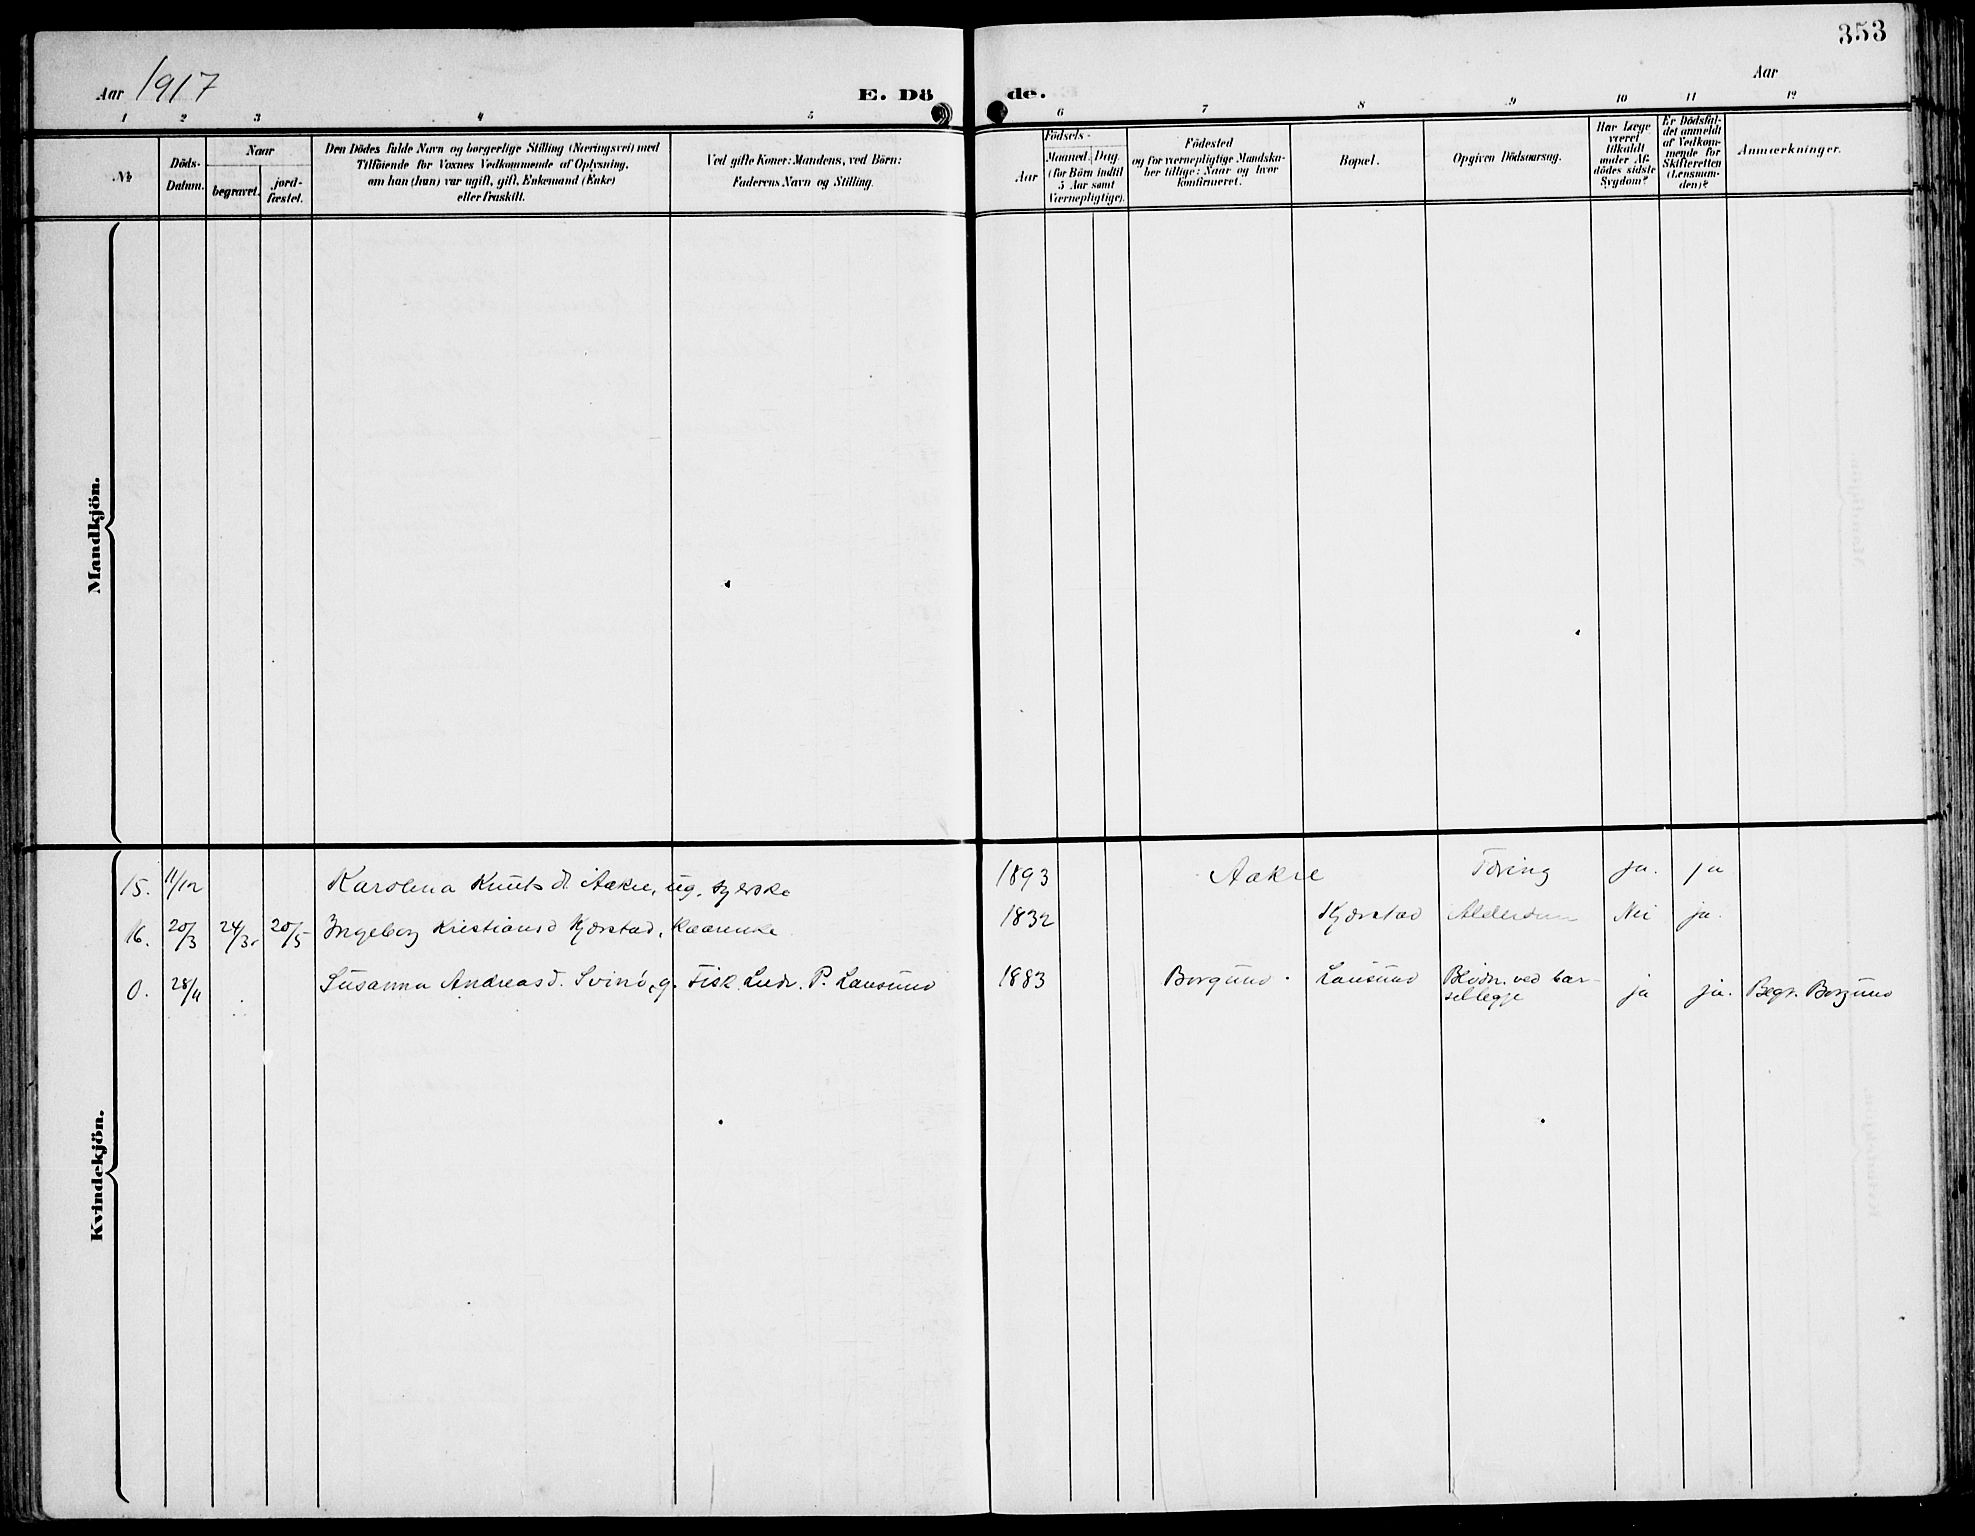 353
Aar 1917
E. Dö
de.
Aar
1 2 3 4 5 6 7 8 9 10 11 12
№
Döds-
Datum.
Naar
begravet.
jord-
fæstet.
Den Dödes fulde Navn og borgerlige Stilling (Næringsvei) med
Tilföiende for Voxnes Vedkommende af Oplysning,
om han (hun) var ugift, gift, Enkemand (Enke)
eller fraskilt.
Ved gifte Koner: Mandens, ved Börn:
Faderens Navn og Stilling.
Aar
Födsels-
Maaned. Dag.
(for Börn indtil
5 Aar samt
Værnepligtige).
Födested
og for værnepligtige Mandska-
ber tillige: Naar og hvor
konfirmeret.
Bopæl.
Opgiven Dödsaarsag.
Har Læge
været
tilkaldt
under Af-
dödes sidste
Sygdom?
Er Dödsfal-
det anmeldt
af Vedkom-
mende for
Skifteretten
(Lensman-
den)?
Anmærkninger.
Mandkjön.
Kvindekjön.
15. 11/12 Karolina Knuts d. Aakre, ug. syerske 1893 Aakre Tæring ja. ja
16. 20/3 24/3. 20/5 Ingeborg Kristiansd Kjærstad, kaarenke 1832 Kjærstad Alderdom Nei ja.
0. 28/11 Susanna Andreasd. Svinö, g. Fisk. Ludv. P. Lausund 1883 Borgund. Lausund Blødn. ved bar-
selleggje ja ja. Begr. Borgund